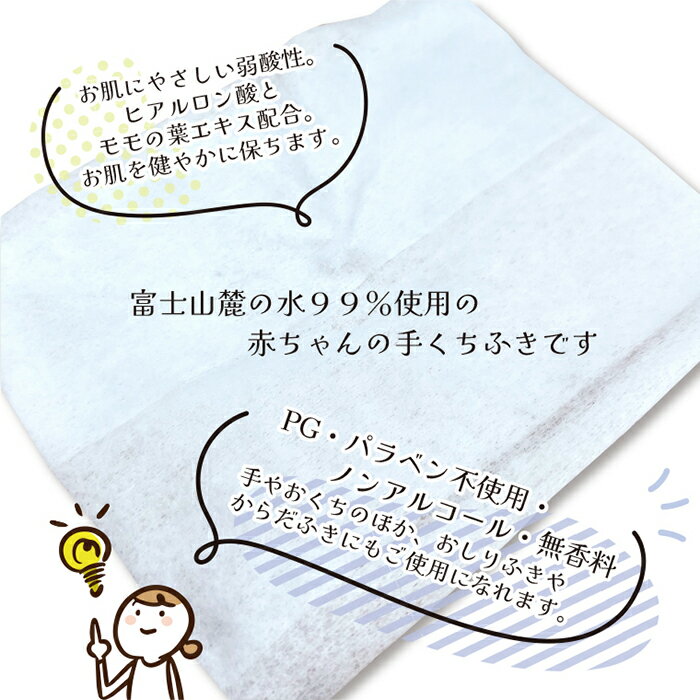 お肌にやさしい弱酸性。
ヒアルロン酸と
モモの葉エキス配合。
お肌を健やかに保ちます。
富士山麓の水９９％使用の
赤ちゃんの手くちふきです
PG・パラベン不使用・
ノンアルコール・無香料
手やおくちのほか、おしりふきや
からだふきにもご使用になれます。